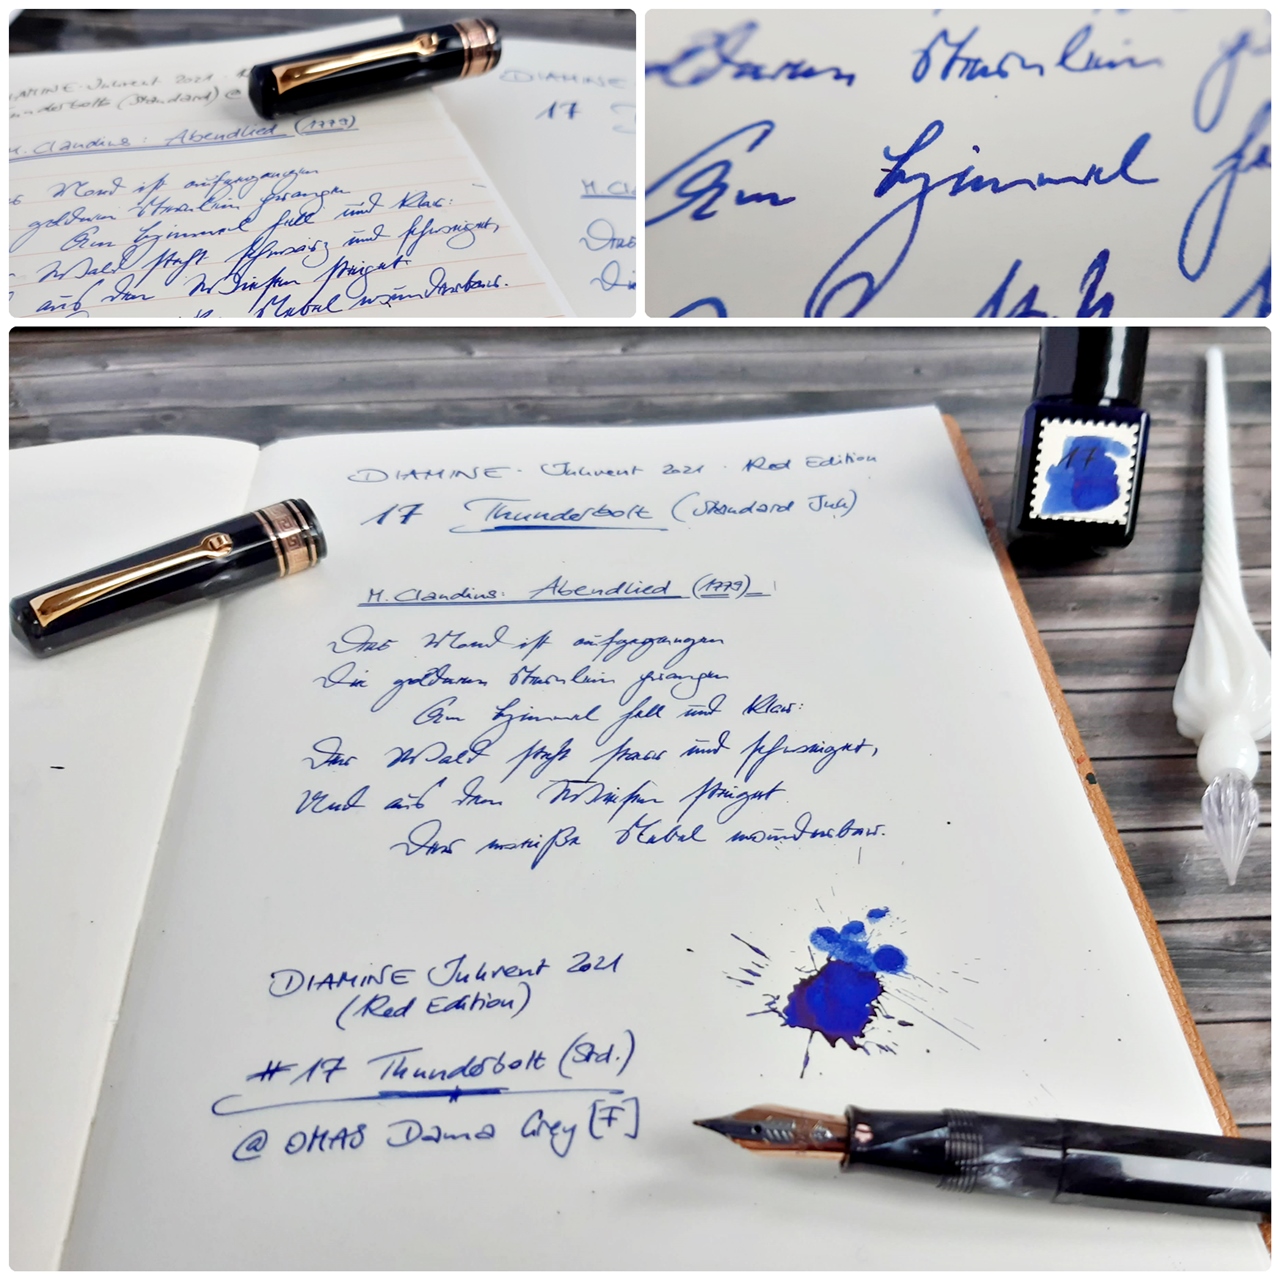 AMINE · Inkvent 2021 ·
underbolt (Standard) @
M. Claudius: Abendlied (1779)
Mond ist aufgegangen
goldnen Sternlein prangen
Am Himmel hell und klar:
Wald steht schwarz und schweiget,
aus den Wiesen steiget
Nebel wunderbar.
DIAMINE
17
M. Cla
Der
Die
goldnen Sternlein
Am Himmel
DIAMINE · Inkvent 2021 · Red Edition
17 Thunderbolt (Standard Ink)
M. Claudius: Abendlied (1779)
Der Mond ist aufgegangen
Die goldnen Sternlein prangen
Am Himmel hell und klar:
Der Wald steht und schweiget,
Und aus den Wiesen steiget
Der weiße Nebel wunderbar.
DIAMINE Inkvent 2021
(Red Edition)
#17 Thunderbolt (Std.)
@ OMAS Dama Grey [F]
17